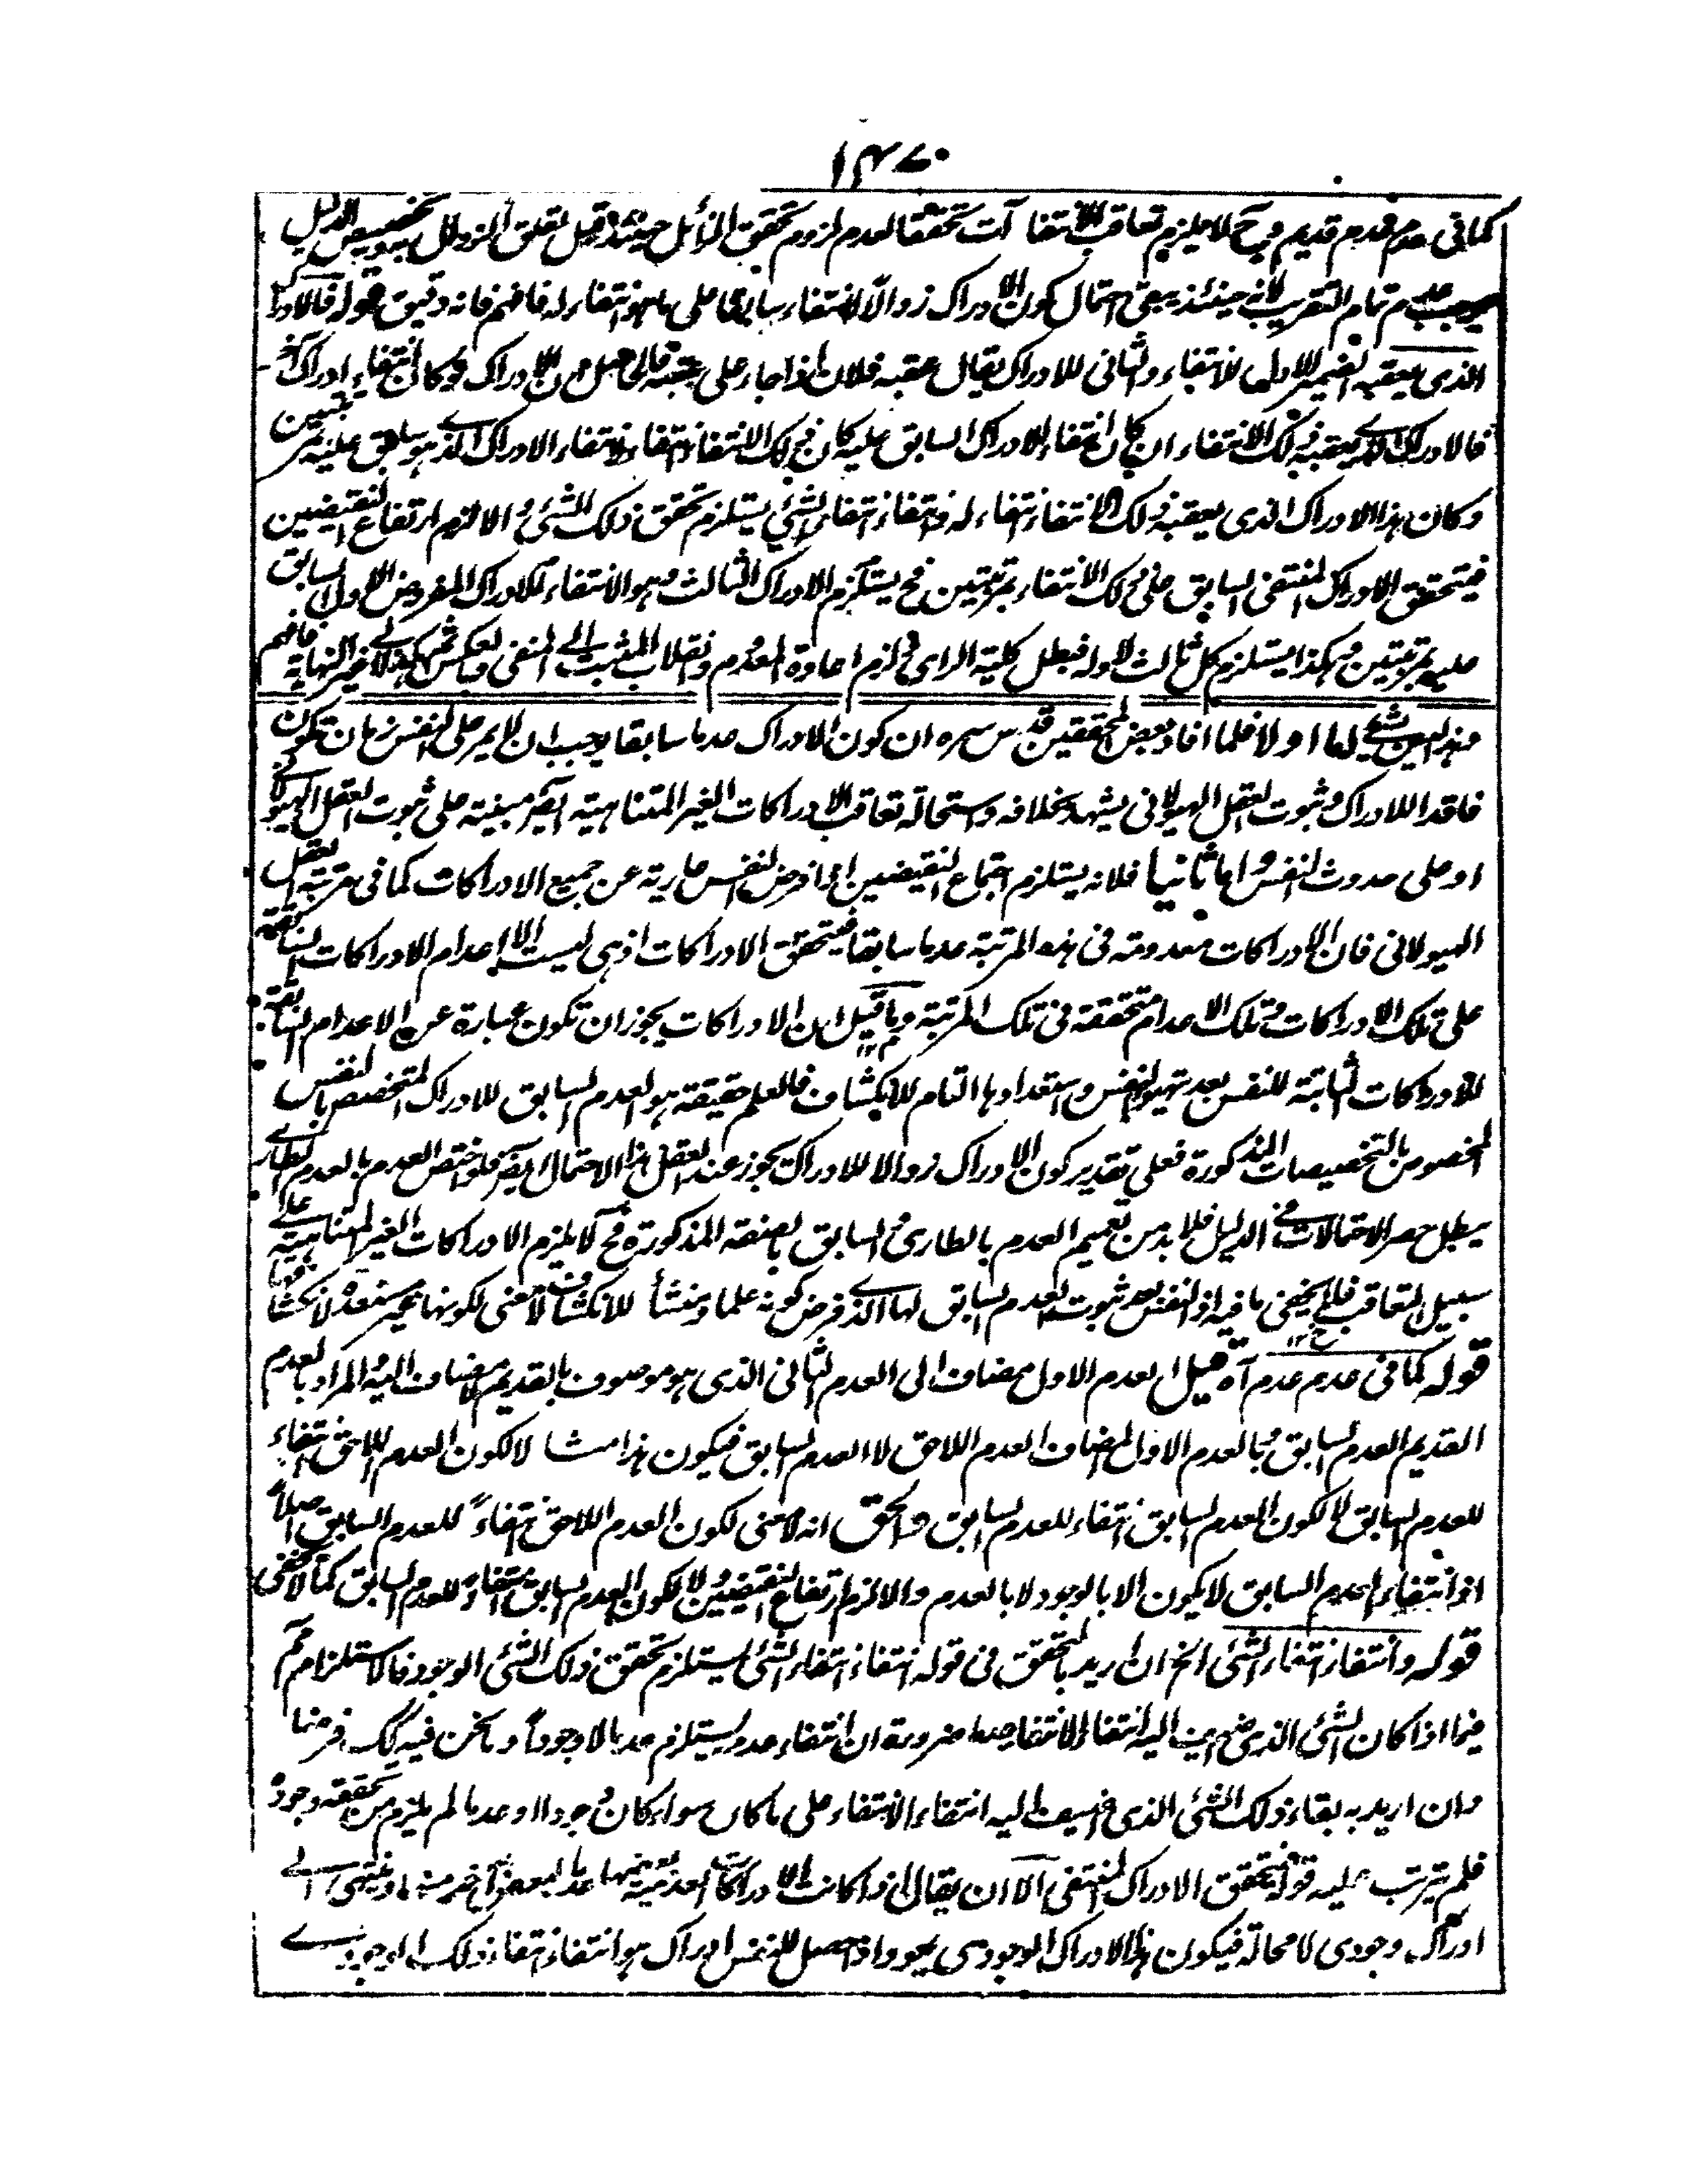 ١٤٧٠
كما فى عدم عدم قديم وح لا يلزم تعاقب الانتفاآت تحققا لعدم لزوم تحقق الزائل حينئذ قبل تعلق الزوال به وتخصيص الدليل
يوجب عدم تمام التقريب لانه حينئذ يبقى احتمال كون الادراك زوالا لانتفاء سابقا على ما هو انتفاء له فافهم فانه دقيق قوله فالادراك
الذى يعقبه الضمير الاول للانتفاء والثانى للادراك يقال عقبه فلان اذا جاء على عقبه فالحاصل من ان الادراك لو كان انتفاء ادراك آخر
فالادراك الذى يعقبه ذلك الانتفاء ان كان انتفاء للادراك السابق عليه كان ذلك الانتفاء انتفاء انتفاء الادراك الذى هو سابق عليه بمرتبتين
وكان هذا الادراك الذى يعقبه ذلك الانتفاء انتفاء له وانتفاء انتفاء الشئ يستلزم تحقق ذلك الشئ والا لزم ارتفاع النقيضين
فيتحقق الادراك المنتفى السابق على ذلك الانتفاء بمرتبتين فح يستلزم الادراك الثالث وهو الانتفاء للادراك المفروض الاول السابق
عليه بمرتبتين وهكذا يستلزم كل ثالث لاوله فبطل كلية الراى ولزم اعادة المعدوم وانقلاب المثبت الى المنفى وبالعكس ثم هكذا الى غير النهاية فافهم
اولا فلما افاد بعض المحققين قدس سره ان كون الادراك عدما سابقا يوجب ان لا يمر على النفس زمان تكون
فاقدا للادراك وثبوت العقل الهيولانى يشهد بخلافه واستحالة تعاقب الادراكات الغير المتناهية ايضر مبنية على ثبوت العقل الهيولانى
او على حدوث النفس واما ثانيا فلانه يستلزم اجتماع النقيضين اذا فرض النفس عارية عن جميع الادراكات كما فى مرتبة العقل
الهيولانى فان الادراكات معدومة فى هذه المرتبة عدما سابقا فيتحقق الادراكات اذ هى ليست الا اعدام الادراكات السابقة
على تلك الادراكات وتلك الاعدام متحققة فى تلك المرتبة وما قيل ان الادراكات يجوز ان تكون عبارة عن الاعدام السابقة
للادراكات الثابتة للنفس بعد تهيؤ النفس واستعدادها التام للانكشاف فالعلم حقيقة هو العدم السابق للادراك المتخصص بالنفس
المخصوص بالتخصيصات المذكورة فعلى تقدير كون الادراك زوالا للادراك يجوز عند العقل هذا الاحتمال ايضر فلو اختص العدم بالعدم الطارى
يبطل حصر الاحتمالات فى الدليل فلا بد من تعميم العدم بالطارى والسابق بالصفة المذكورة وح لا يلزم الادراكات الغير المتناهية على
سبيل التعاقب فلا يخفى ما فيه اذ النفس بعد ثبوت العدم السابق لها الذى فرض كونه علما ومنشأ للانكشاف لا معنى لكونها غير مستعدة لانكشاف
قوله كما فى عدم عدم آه قيل ان العدم الاول مضاف الى العدم الثانى الذى هو موصوف بالقديم لا مضاف اليه والمراد بالعدم
القديم العدم السابق وبالعدم الاول المضاف العدم اللاحق لا العدم السابق فيكون هذا مثالا لكون العدم اللاحق انتفاء
للعدم السابق لا لكون العدم السابق انتفاء للعدم السابق والحق انه لا معنى لكون العدم اللاحق انتفاءً للعدم السابق اصلاً
اذ انتفاء العدم السابق لا يكون الا بالوجود لا بالعدم والا لزم ارتفاع النقيضين ولا لكون العدم السابق انتفاءً للعدم السابق كما لا يخفى
قوله وانتفاء انتفاء الشئ الخ ان اريد بالتحقق فى قوله انتفاء انتفاء الشئ يستلزم تحقق ذلك الشئ الوجود فالاستلزام مم
فيما اذا كان الشئ الذى اضيف اليه انتفاء الانتفاء عدما ضرورة ان انتفاء عدمه يستلزم عدما لا وجوداً وما نحن فيه كك فرضا
وان اريد به بقاء ذلك الشئ الذى اضيف اليه انتفاء الانتفاء على ما كان سواء كان وجودا او عدما لم يلزم من تحققه وجوده
فلم يترتب عليه قوله فيتحقق الادراك المنتفى الا ان يقال اذا كانت الادراكات العدمية بعضها عدما لبعض آخر منه او ينتهى الى
ادراك وجودى لا محالة فيكون هذا الادراك الوجودى يعود اذا حصل للنفس ادراك هو انتفاء انتفاء ذلك الوجودى